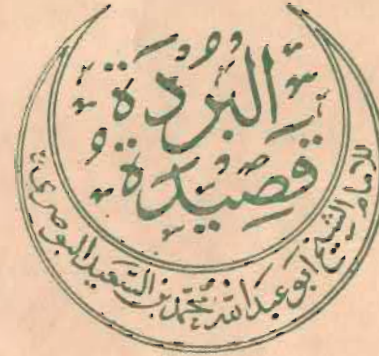 البُرْدَة
قَصِيدَة
للامام الشيخ ابو عبد الله محمد بن السعيد البوصرى